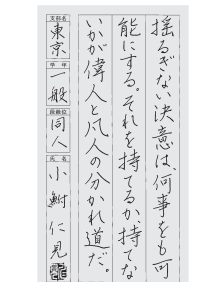 揺るぎない決意は、何事をも可
能にする。それを持てるか、持てな
いかが偉人と凡人の分かれ道だ。
支部名 東京
学年 一般
段級位 同人
氏名 小鮒仁見